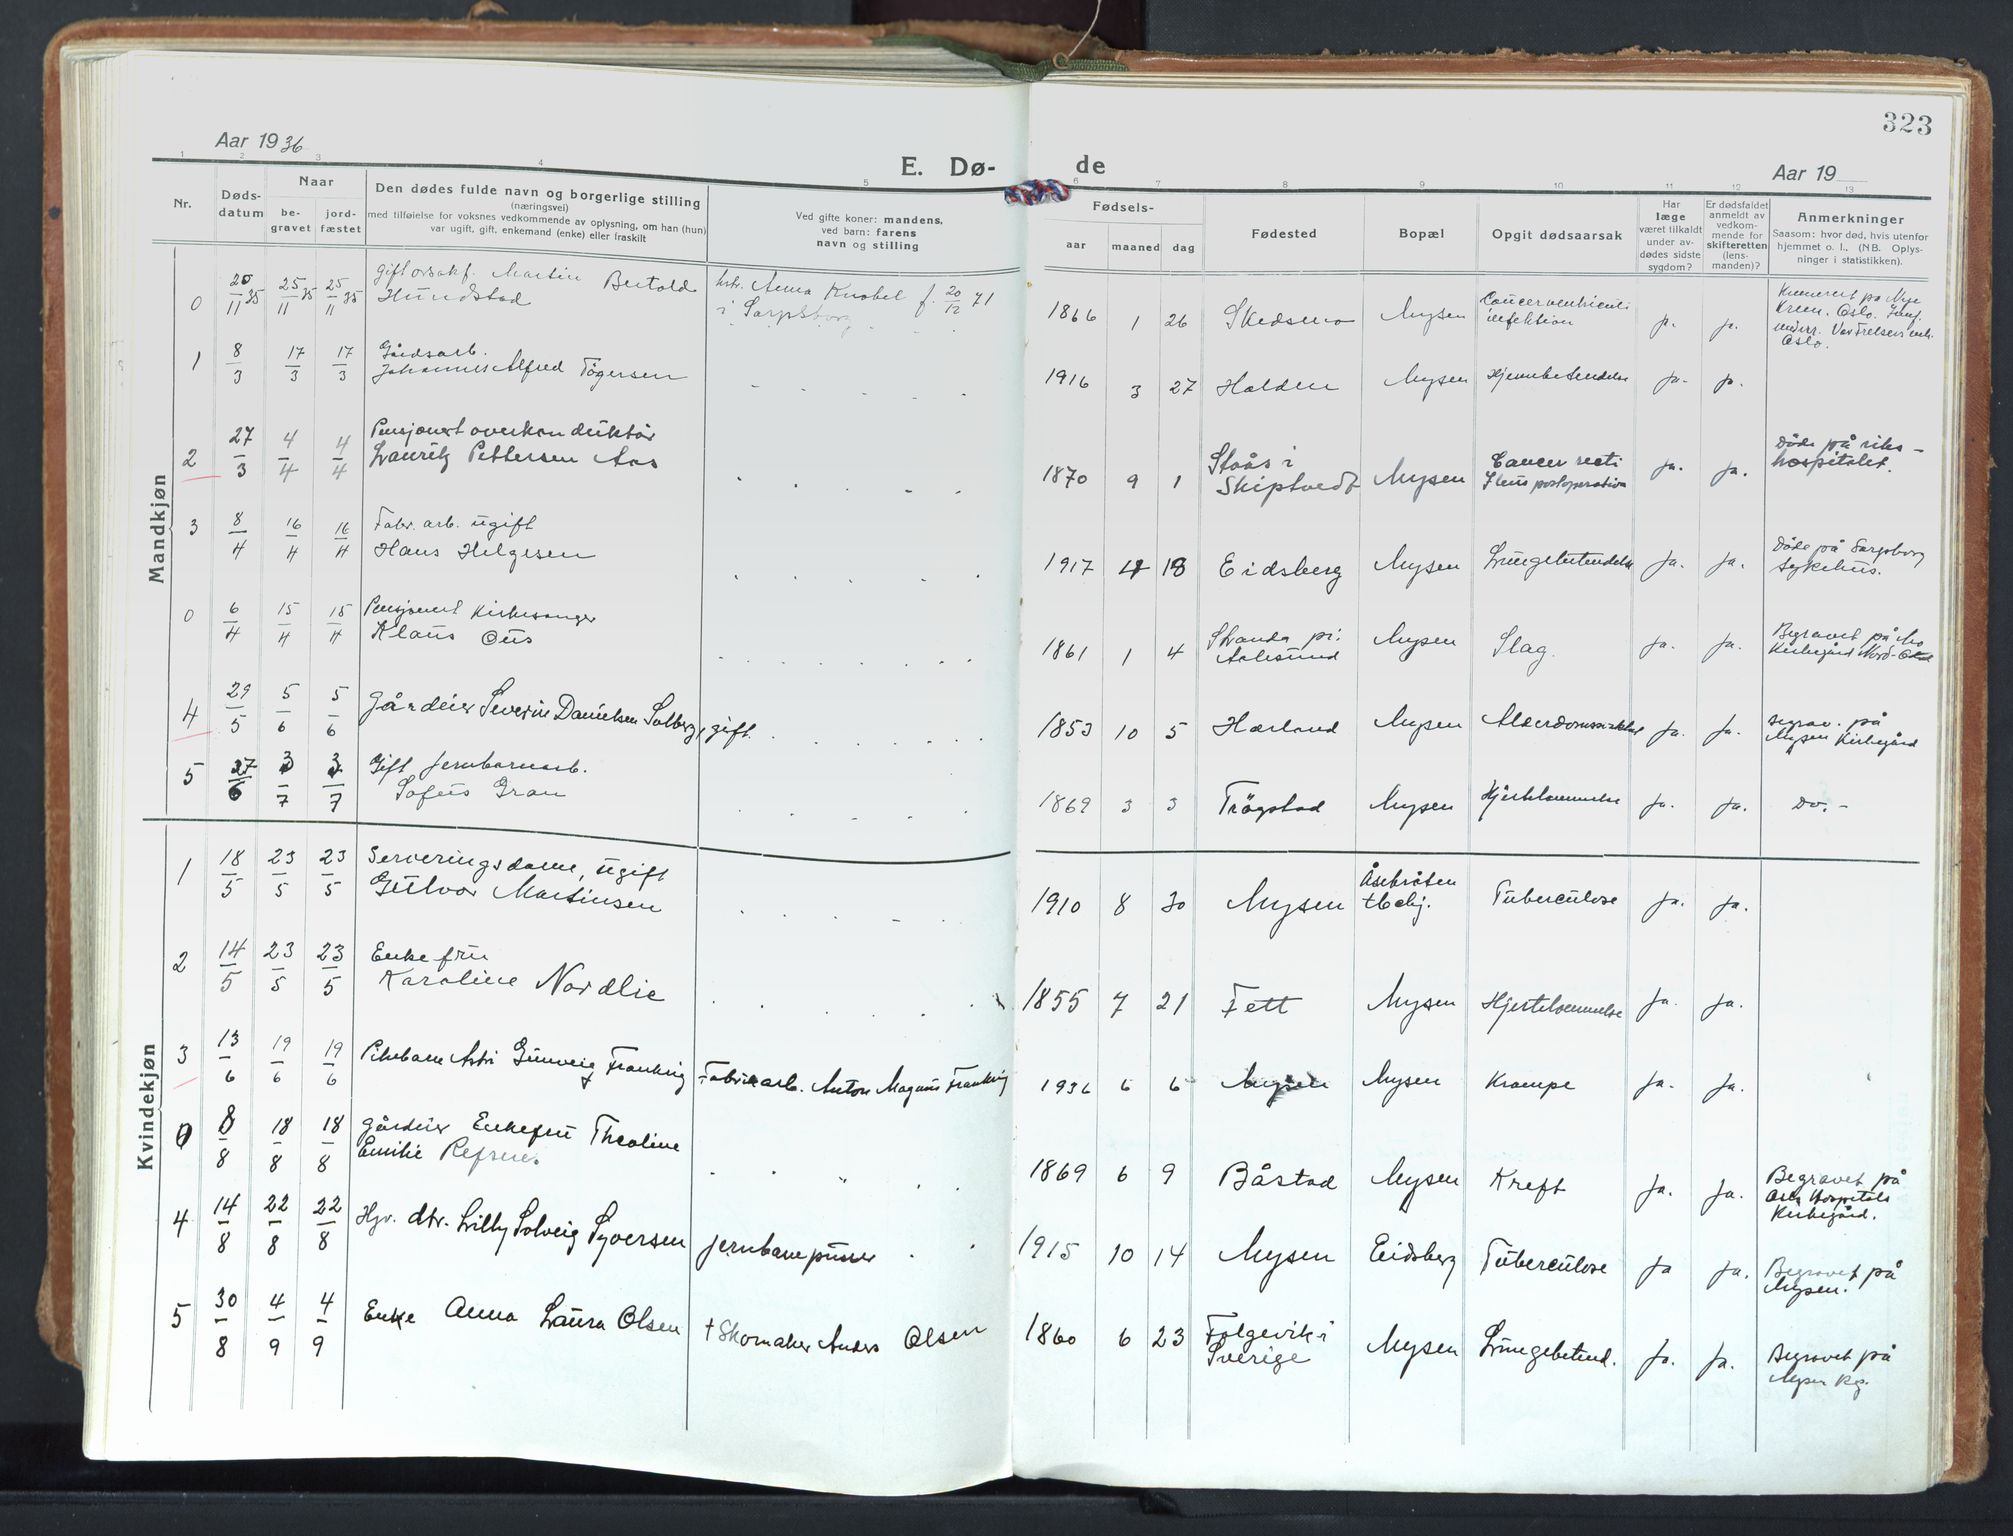 323
Aar 1936
E. Dø-
de
Aar 19
1 2 3 4 5 6 7 8 9 10 11 12 13
Nr.
Døds-
datum
Naar
be-
gravet
jord-
fæstet
Den dødes fulde navn og borgerlige stilling
(næringsvei)
med tilføielse for voksnes vedkommende av oplysning, om han (hun)
var ugift, gift, enkemand (enke) eller fraskilt
Ved gifte koner: mandens,
ved barn: farens
navn og stilling
Fødsels-
aar
maaned
dag
Fødested
Bopæl
Opgit dødsaarsak
Har
læge
været tilkaldt
under av-
dødes sidste
sygdom?
Er dødsfaldet
anmeldt av
vedkom-
mende for
skifteretten
(lens-
manden)?
Anmerkninger
Saasom: hvor død, hvis utenfor
hjemmet o. l., (NB. Oplys-
ninger i statistikken).
Mandkjøn
0 20/11 35 25/11 35 25/11 35 Gift Martin Bertold
Hundstad
Anna Knobel f. 20/12 71
i Sarpsborg
1866 1 26 Skedsmo Mysen Cancer ventriculi
infektion
ja. ja.
Kremert på Nye
Krem. Oslo.
Oslo.
1 8/3 17/3 17/3 Gårdsarb.
Johannes Alfred Tögersen
1916 3 27 Halden Mysen Hjernebetendelse ja. ja.
2 27/3 4/4 4/4 Pensjonert overkonduktör
Lauritz Pettersen Aas
1870 9 1 i
Skiptvedt Mysen Cancer recti
Ileus postoperativ ja. ja.
Döde på riks-
hospitalet.
3 8/4 16/4 16/4 Fabr. arb. ugift
Hans Helgesen
1917 4 18 Eidsberg Mysen Lungebetendelse ja. ja.
Döde på Sarpsborg
sykehus.
0 6/4 15/4 15/4 Pensjonert Kirkesanger
Klaus Ous
1861 1 4 Stranda pr.
Aalesund Mysen Slag. ja. ja.
Begravet på Mo
Kirkegård Nord-Odal
4 29/5 5/6 5/6 Gårdeier Severin Danielsen Solberg, gift.
1853 10 5 Hærland Mysen Alderdomssvakhet ja. ja.
Begrav. på
Mysen Kirkegård
5 27/6 3/7 3/7 Gift Jernbanearb.
Sofus Gran
1869 3 3 Trögstad Mysen Hjertelammelse ja. ja. Do. -
Kvindekjøn
1 18/5 23/5 23/5 Serveringsdame, ugift
Gulvor Martinsen
1910 8 30 Mysen Åsebråten
tbchj. Tuberculose ja. ja.
2 14/5 23/5 23/5 Enkefru
Karoline Nordlie
1855 7 21 Fett Mysen Hjertelammelse ja. ja.
3 13/6 19/6 19/6 Pikebarn Astri Gunveig Frankrig
Fabrikarb. Anton Magnus Frankrig
1936 6 6 Mysen Mysen Krampe ja. ja.
0 8/8 18/8 18/8 Gårdeier Enkefru Theoline
Emilie Refsnes
1869 6 9 Båstad Mysen Kreft ja. ja.
Begravet på
Hospitals
Kirkegård.
4 14/8 22/8 22/8 Hjv. dtr. Lilly Solveig Syversen
Jernbanepusser
1915 10 14 Mysen Eidsberg Tuberculose ja ja.
Begravet på
Mysen.
5 30/8 4/9 4/9 Enke Anna Laura Olsen
† Skomaker Anders Olsen
1860 6 23 Folgevik i
Sverige Mysen Lungebetend. ja. ja.
Begravet på
Mysen Kg.